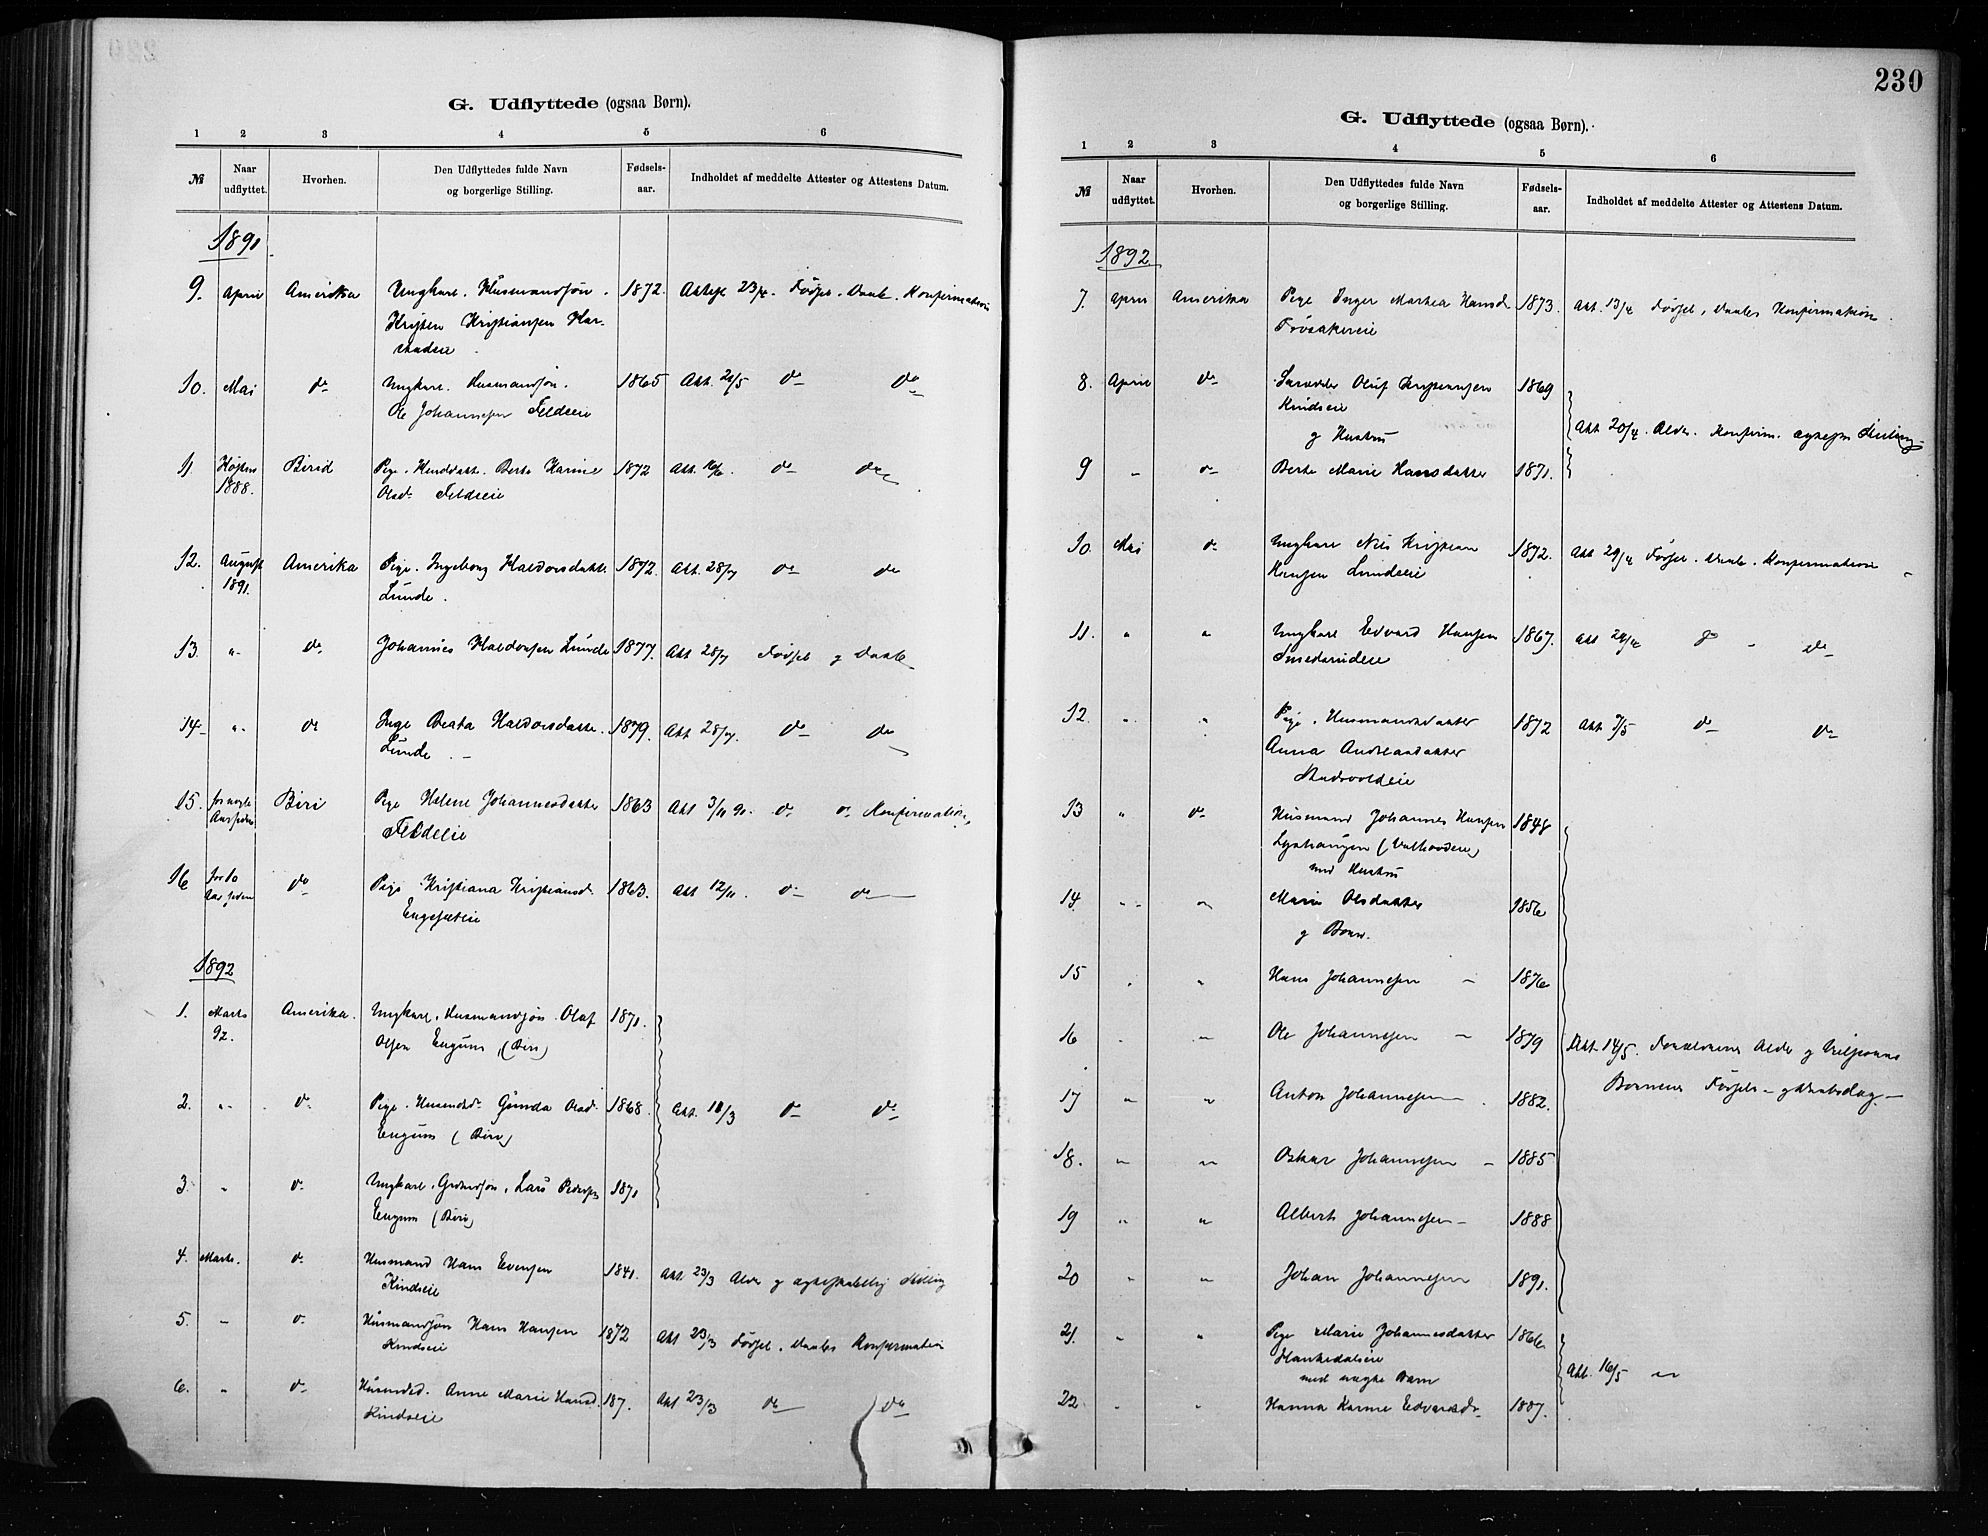 G. Udflyttede (ogsaa Børn).
1 2 3 4 5 6
№ Naar udflyttet. Hvorhen. Den Udflyttedes fulde Navn og borgerlige Stilling. Fødsels-aar. Indholdet af meddelte Attester og Attestens Datum.
1891
9. April Amerika Ungkarl. Husmandsøn. 1872. Attest 23/4. Fødsel. Daab. Konfirmation
Kristen Kristiansen Har-
stadeie
10. Mai do Ungkarl. Husmandsøn. 1865 Att. 21/5 do do
Ole Johannesen Feldseie
11 Høsten Birid Pige. Husddatt. Berte Karine 1872 Att. do do
1888. Olsd. Feldseie
12. August Amerika Pige. Ingeborg Haldorsdatt. 1872. Att. 28/7 do do
1891. Lunde.
13. " do Johannes Haldorsen Lunde 1877. Att 28/7 Fødsel og Daab
14 " do Inga Beata Haldorsdatte. 1879. Att 28/7. do do
Lunde
15. for nogle Biri Pige Helene Johannesdatter 1863 Att 3/11 91. do do Konfirmation
Aar siden Feldseie
16 for 10 do Pige Kristiana Kristiansd. 1863. Att 12/11. do do
Aar siden Engesæteie
1892
1. Marts Amerika. Ungkarl. Husmandsøn. Olaf 1871.
92. Olsen Engum (Biri)
2. " do Pige. Husmdsd. Gunda Olsd. 1868. Att. 18/3 do do
Engum (Biri)
3. " do Ungkarl. Grdmdsøn. Lars Pedersen 1871
Engum (Biri)
4. Marts. do Husmand Hans Evensen 1841. Att. 23/3 Alder og ægteskabelig Stilling
Kindseie
5. " do Husmandsøn Hans Hansen 1872 Att 23/3 Fødsel. Daabs Konfirmation
Kindseie
6. " do Husmdsd. Anne Marie Hansd. 187. Att 23/3 do do
Kindseie
230
G. Udflyttede (ogsaa Børn).
1 2 3 4 5 6
№ Naar udflyttet. Hvorhen. Den Udflyttedes fulde Navn og borgerlige Stilling. Fødsels-aar. Indholdet af meddelte Attester og Attestens Datum.
1892
7. April Amerika Pige Inger Martea Hansd. 1873. Att. 13/4 Fødsel, Daabs Konfirmation.
8. April do Oluf 1869
Kindseie
og Hustru Att 20/4. Alder. Konfirm. Stilling
9 " do Berte Marie Hansdatter 1871.
10. Mai do Ungkarl Nils Kristian 1872. Att 29/4 Fødsel. Daab. Konfirmation
Hansen Lundseie
11. " " Ungkarl Edvard Hansen 1867. Att 29/4 do do
Smedsrudeie
12. " " Pige. Husmandsdatter 1872 Att 7/5 do do
Anna Andreasdatter
13 " do Husmand Johannes Hansen 1848
med Hustru
14. " " Marie Olsdatter 1856
og Børn.
15 " " Hans Johannesen 1876
16 " " Ole Johannesen 1879 Att. 14/5. Forældrenes Alder og
17 " " Anton Johannesen 1882. Børnenes Fødsels- og Daabsdag
18. " " Oskar Johannesen 1885
19 " " Albert Johannesen 1888
20 " " Johan Johannesen 1891.
21. " " Pige Marie Johannesdatter 1866.
med uægte Barn Att. 16/5 "
22 " " Hanna Karine Edvardsdr. 1887.